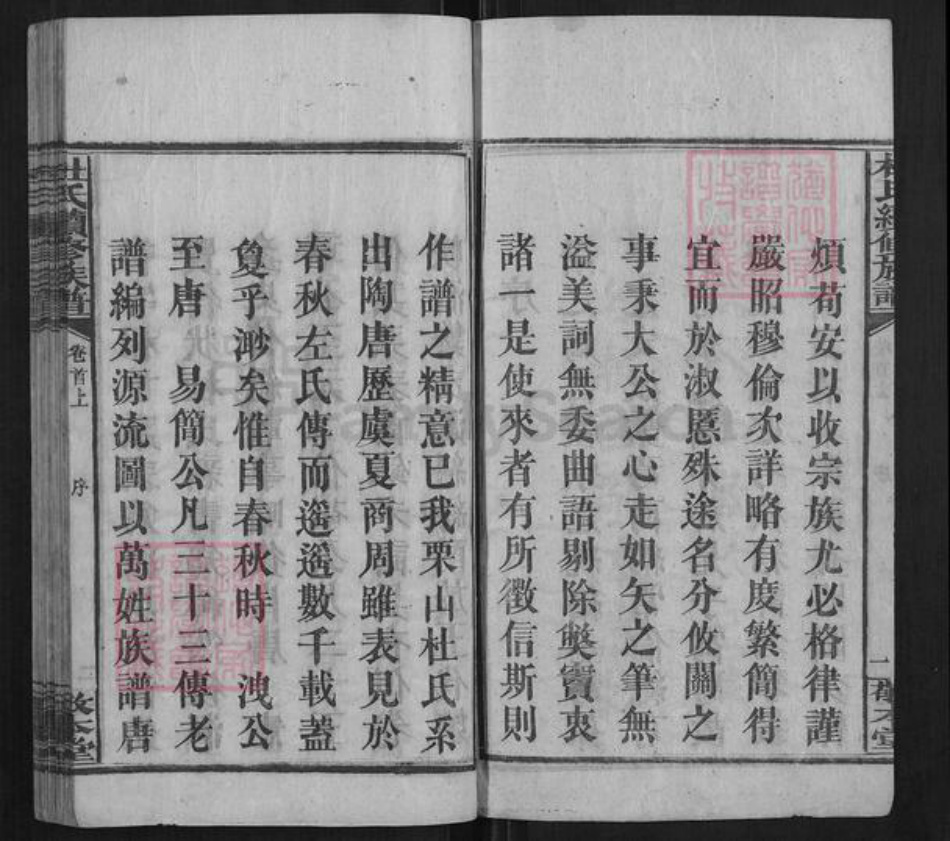 杜氏續修族譜
煩苟安以收宗族尤必格律謹
嚴昭穆倫次詳略有度繁簡得
宜而於淑慝殊途名分攸關之
事秉大公之心走如矢之筆無
溢美詞無委曲語剔除獘竇衷
諸一是使來者有所徵信斯則
作譜之精意已我栗山杜氏系
出陶唐歷虞夏商周雖表見於
春秋左氏傳而遥遥數千載蓋
敻乎渺矣惟自春秋時 洩公
至唐 易簡公凡三十三傳老
譜編列源流圖以萬姓族譜唐
杜氏續修族譜
卷首上
序
二
敦本堂